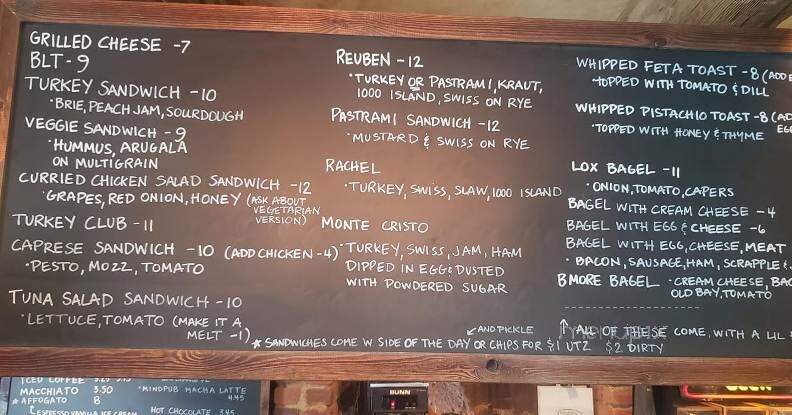 GRILLED CHEESE -7
BLT - 9
TURKEY SANDWICH -10
• BRIE, PEACH JAM, SOURDOUGH
VEGGIE SANDWICH - 9
• HUMMUS, ARUGALA
ON MULTIGRAIN
CURRIED CHICKEN SALAD SANDWICH -12
• GRAPES, RED ONION, HONEY (ASK ABOUT
VEGETARIAN
VERSION)
TURKEY CLUB -11
CAPRESE SANDWICH -10 (ADD CHICKEN -4)
• PESTO, MOZZ, TOMATO
TUNA SALAD SANDWICH -10
• LETTUCE, TOMATO (MAKE IT A
MELT -1)
REUBEN -12
• TURKEY OR PASTRAMI, KRAUT,
1000 ISLAND, SWISS ON RYE
PASTRAMI SANDWICH -12
• MUSTARD & SWISS ON RYE
RACHEL
• TURKEY, SWISS, SLAW, 1000 ISLAND
MONTE CRISTO
• TURKEY, SWISS, JAM, HAM
DIPPED IN EGG & DUSTED
WITH POWDERED SUGAR
WHIPPED FETA TOAST -8 (ADD
TOPPED WITH TOMATO & DILL
WHIPPED PISTACHIO TOAST -8 (AD
• TOPPED WITH HONEY & THYME
LOX BAGEL -11
• ONION, TOMATO, CAPERS
BAGEL WITH CREAM CHEESE - 4
BAGEL WITH EGG & CHEESE -6
BAGEL WITH EGG, CHEESE, MEAT
• BACON, SAUSAGE, HAM, SCRAPPLE
BMORE BAGEL • CREAM CHEESE,
OLD BAY, TOMATO
↑ ALL OF THESE COME WITH A LIL
↙ AND PICKLE
★ SANDWICHES COME W SIDE OF THE DAY OR CHIPS FOR $1 UTZ $2 DIRTY
ICED COFFEE
MACCHIATO 3.50
★ AFFOGATO 8
ESPRESSO VANILLA ICE CREAM
• MINDPUB MACHA LATTE
4.45
HOT CHOCOLATE 3.45
BUNN